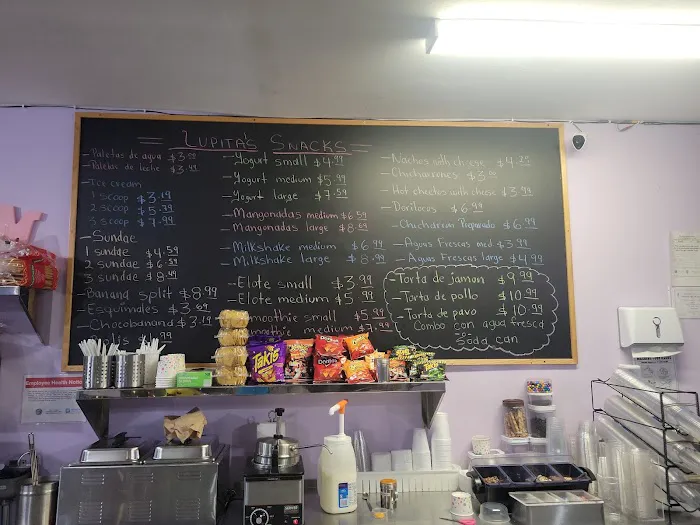 LUPITA'S SNACKS
- Paletas de agua $3.
- Paletas de leche $3.49
- Ice cream
1 scoop $3.19
2 scoop $5.39
3 scoop $7.99
- Sundae
1 sundae $4.59
2 sundae $6.59
3 sundae $8.49
- Banana split $8.99
- Esquimales $3.69
- Chocobanana $3.19
- Yogurt small $4.99
- Yogurt medium $5.99
- Yogurt large $7.59
- Mangonadas medium $6.59
- Mangonadas large $8.69
- Milkshake medium $6.99
- Milkshake large $8.99
- Elote small $3.99
- Elote medium $5.99
Smoothie small $5.99
Smoothie medium $7.99
- Nachos with cheese $4.25
- Chicharrones $3.
- Hot cheetos with cheese $3.99
- Dorilocos $6.99
- Chicharron Preparado $6.99
- Aguas Frescas med $3.99
- Aguas Frescas large $4.99
- Torta de jamon $9.99
- Torta de pollo $10.99
- Torta de pavo $10.99
Combo con agua fresca
or
Soda can
Takis
Doritos
Employee Health Notice